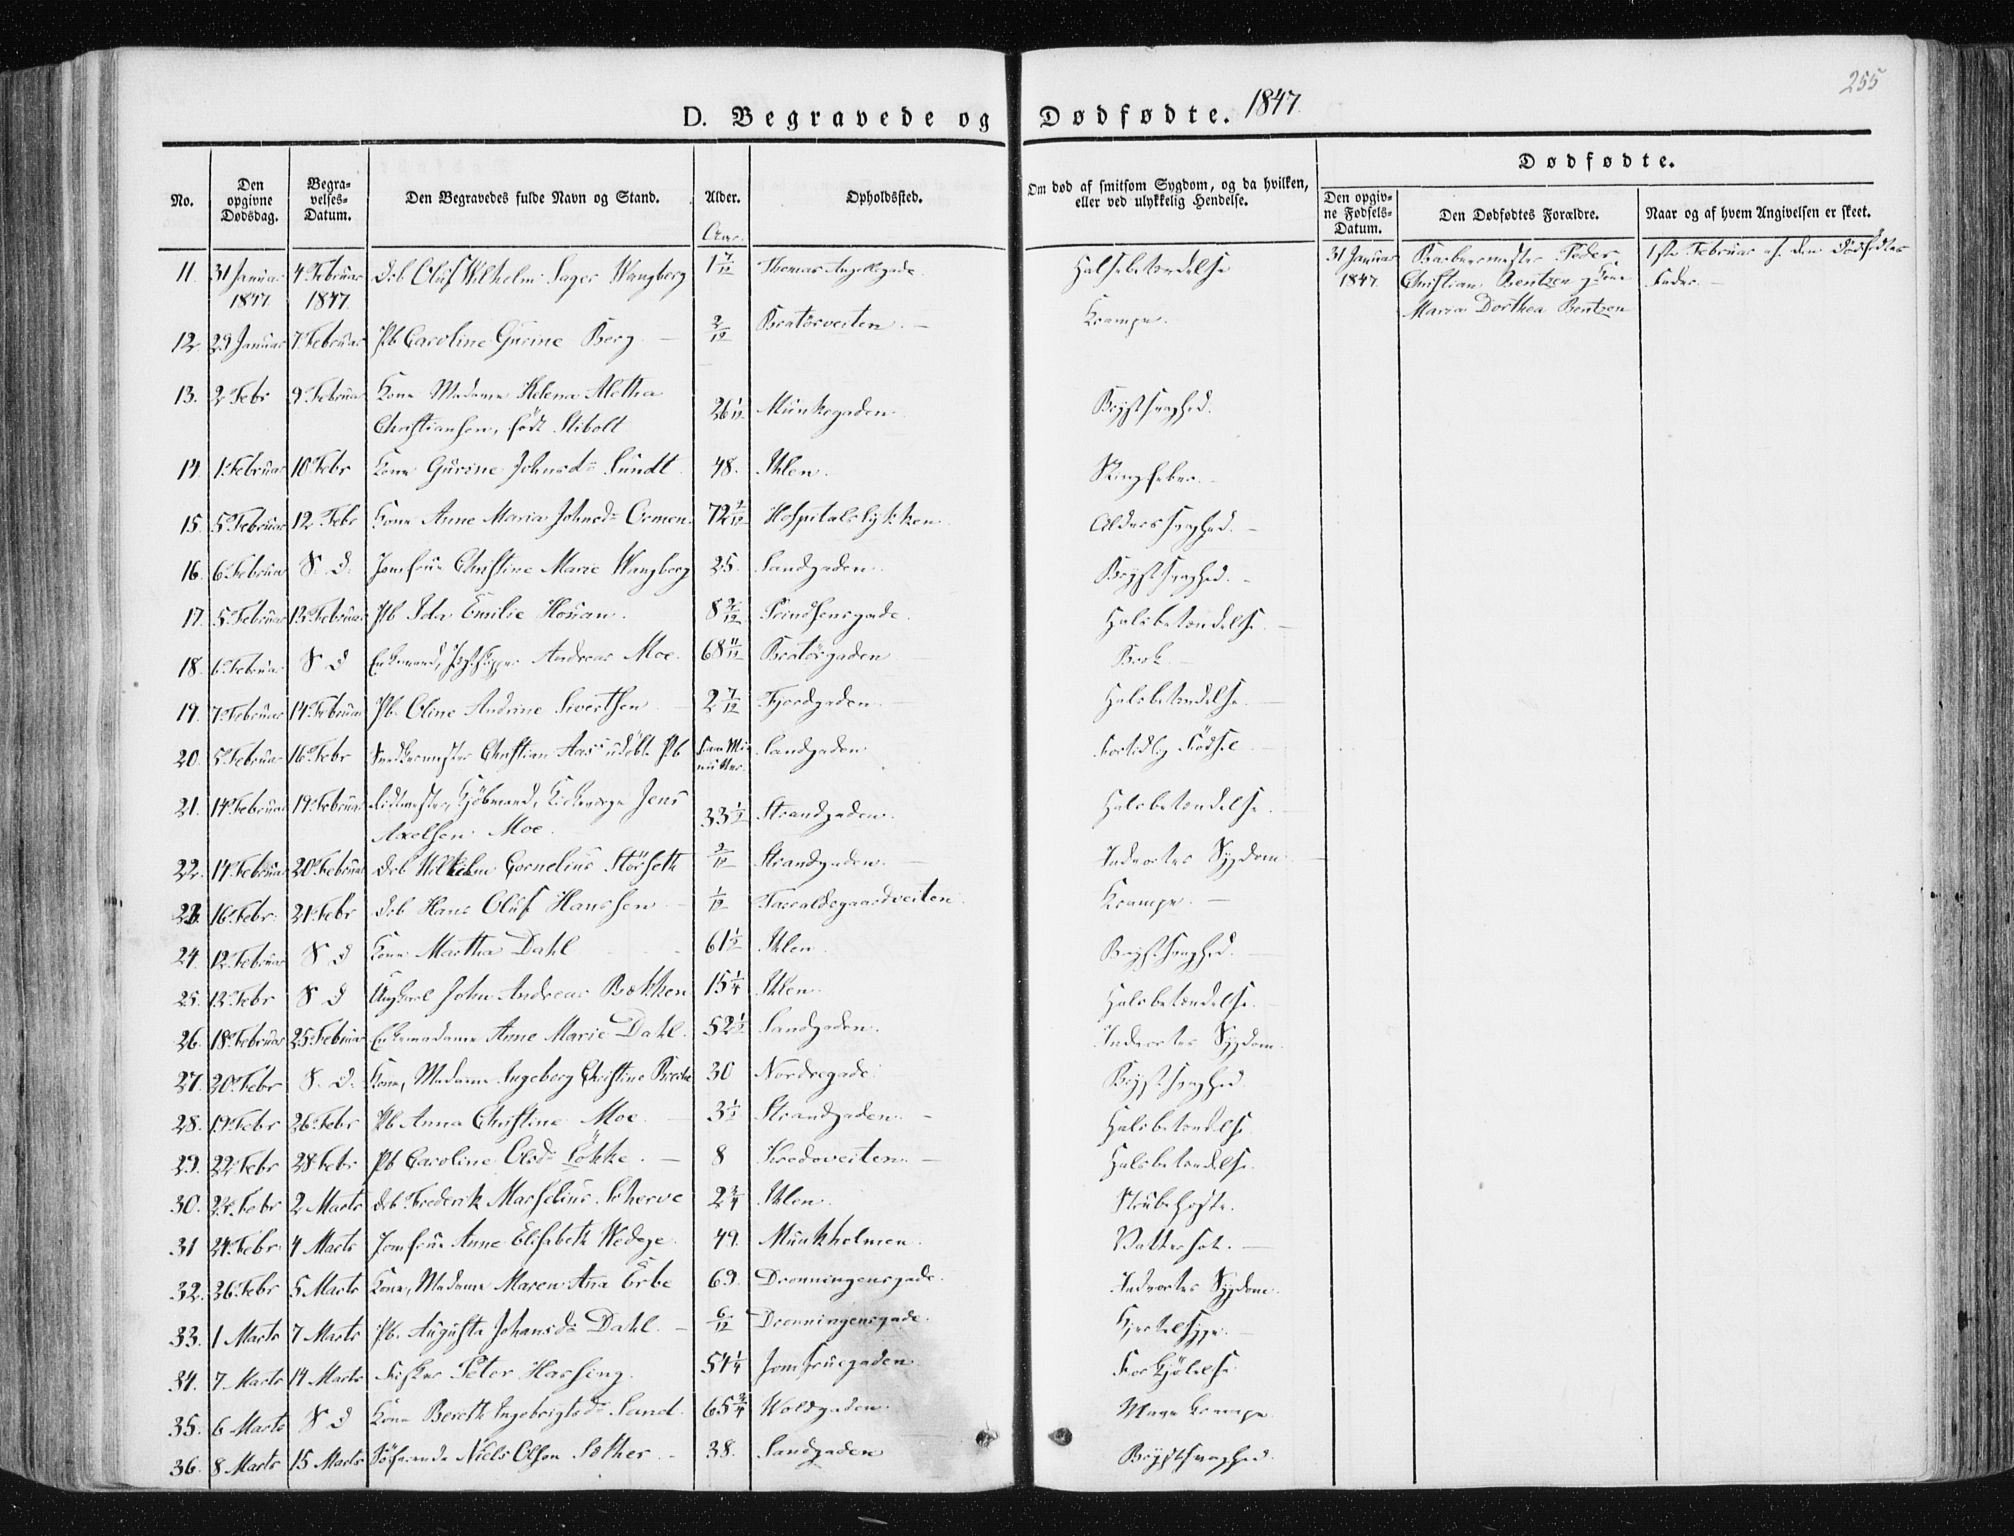 255
D. Begravede og Dødfødte. 1847.
No. | Den opgivne Dødsdag. | Begravelses-Datum. | Den Begravedes fulde Navn og Stand. | Alder. | Opholdssted. | Om død af smitsom Sygdom, og da hvilken, eller ved ulykkelig Hendelse. | Dødfødte.
Den opgivne Fødsels-Datum. | Den Dødfødtes Forældre. | Naar og af hvem Angivelsen er skeet.
Aar.
11. | 31 Januar 1847 | 4 Februar 1847 | Db Oluf Wilhelm Sager Wangberg | 1 7/12 | Thomas Angellsgade | Halsebetændelse | 31 Januar 1847 | Peder Christian Bentzen Maria Dorthea Bentzen | 1ste Februar af den Dødfødtes Fader.
12. | 29 Januar | 7 Februar | Pb Caroline Gurine Berg | 2/12 | Bratörveiten | Krampe.
13. | 2 Febr | 9 Februar | Kone Madame Helena Aletha Christiansen, född Stibolt | 26 1/12 | Munkegaden | Brystsvaghed.
14 | 1 Februar | 10 Febr | Kone Gurine Johnsd: Sundt | 48. | Ihlen.
15. | 5 Februar | 12 Febr | Kone Anne Maria Johnsd: Ormen | 72 2/12 | Hospitalslykken | Alderssvaghed.
16. | 6 Februar | S. D. | Jomfrue Christine Marie Wangberg | 25. | Sandgaden | Brystsvaghed.
17. | 5 Februar | 13 Februar | Pb Ida Emilie Housan | 8 2/12 | Prindsensgade. | Halsbetændelse.
18. | 6 Februar | S D | Enkemand, Andreas Moe. | 68 11/12 | Bratörgaden | Brok.
19. | 7 Februar | 14 Februar | Pb. Oline Andrine Sivertsen | 2 7/12 | Fjordgaden | Halsbetændelse.
20. | 5 Februar | 16 Febr | Snedkermester Christian Aas's udöbt Pb | Minutter. | Sandgaden | Fortidlig Födsel
21. | 14 Februar | 19 Februar | Kjöbmand, Jens Axelsen Moe. | 33 1/2 | Strandgaden. | Halsbetændelse.
22. | 14 Februar | 20 Februar | Db Wilhelm Cornelius Störseth | 2/12 | Strandgaden. | Indvortes Sygdom
23. | 16 Febr. | 21 Febr | Db Hans Oluf Hanssen | 1/12 | Taraldsgaardveiten. | Krampe.
24. | 12 Februar | S D | Kone Martha Dahl | 61 1/2 | Ihlen | Brystsvaghed.
25. | 13 Febr | S D | Ungkarl John Andreas Bækken | 15 1/4 | Ihlen. | Halsbetændelse.
26. | 18 Februar | 25 Februar | Enkemadame Anne Marie Dahl. | 52 1/2 | Sandgaden. | Indvortes Sygdom.
27. | 20 Febr | S. D. | Kone, Madame Ingeborg Christine | 30 | Nordregade. | Brystsvaghed.
28. | 19 Febr | 26 Febr | Pb Anna Christine Moe. | 3 1/2 | Strandgaden. | Halsbetændelse
29. | 22 Febr | 28 Febr | Pb Caroline Olsd: Lökke. | 8 | Kredoveiten. | Halsbetændelse.
30. | 22 Febr | 2 Marts | Db Frederik Marselius Scherve | 2 3/4 | Ihlen. | Strubehoste.
31 | 24 Febr. | 4 Marts | Jomfrue Anne Elisabeth Wedege. | 49. | Munkholmen. | Vattersot.
32. | 26 Febr | 5 Marts | Kone, Madame Maren Ana Erbe | 69. | Dronningensgade. | Indvortes Sygdom.
33. | 1 Marts | 7 Marts | Pb. Augusta Johansd: Dahl. | 6/12 | Dronningensgade. | Kjertelsyge.
34. | 7 Marts | 14 Marts | Fisker Peter Harsing. | 54 1/4 | Jomfruegaden | Forkjölelse.
35. | 6 Marts | S D | Kone Bereth Ingebrigtsd: Sand. | 65 3/4 | Woldgaden. | Mave Krampe.
36. | 8 Marts | 15 Marts | Söfarende Niels Olsen Sæther. | 38. | Sandgaden | Brystsvaghed.